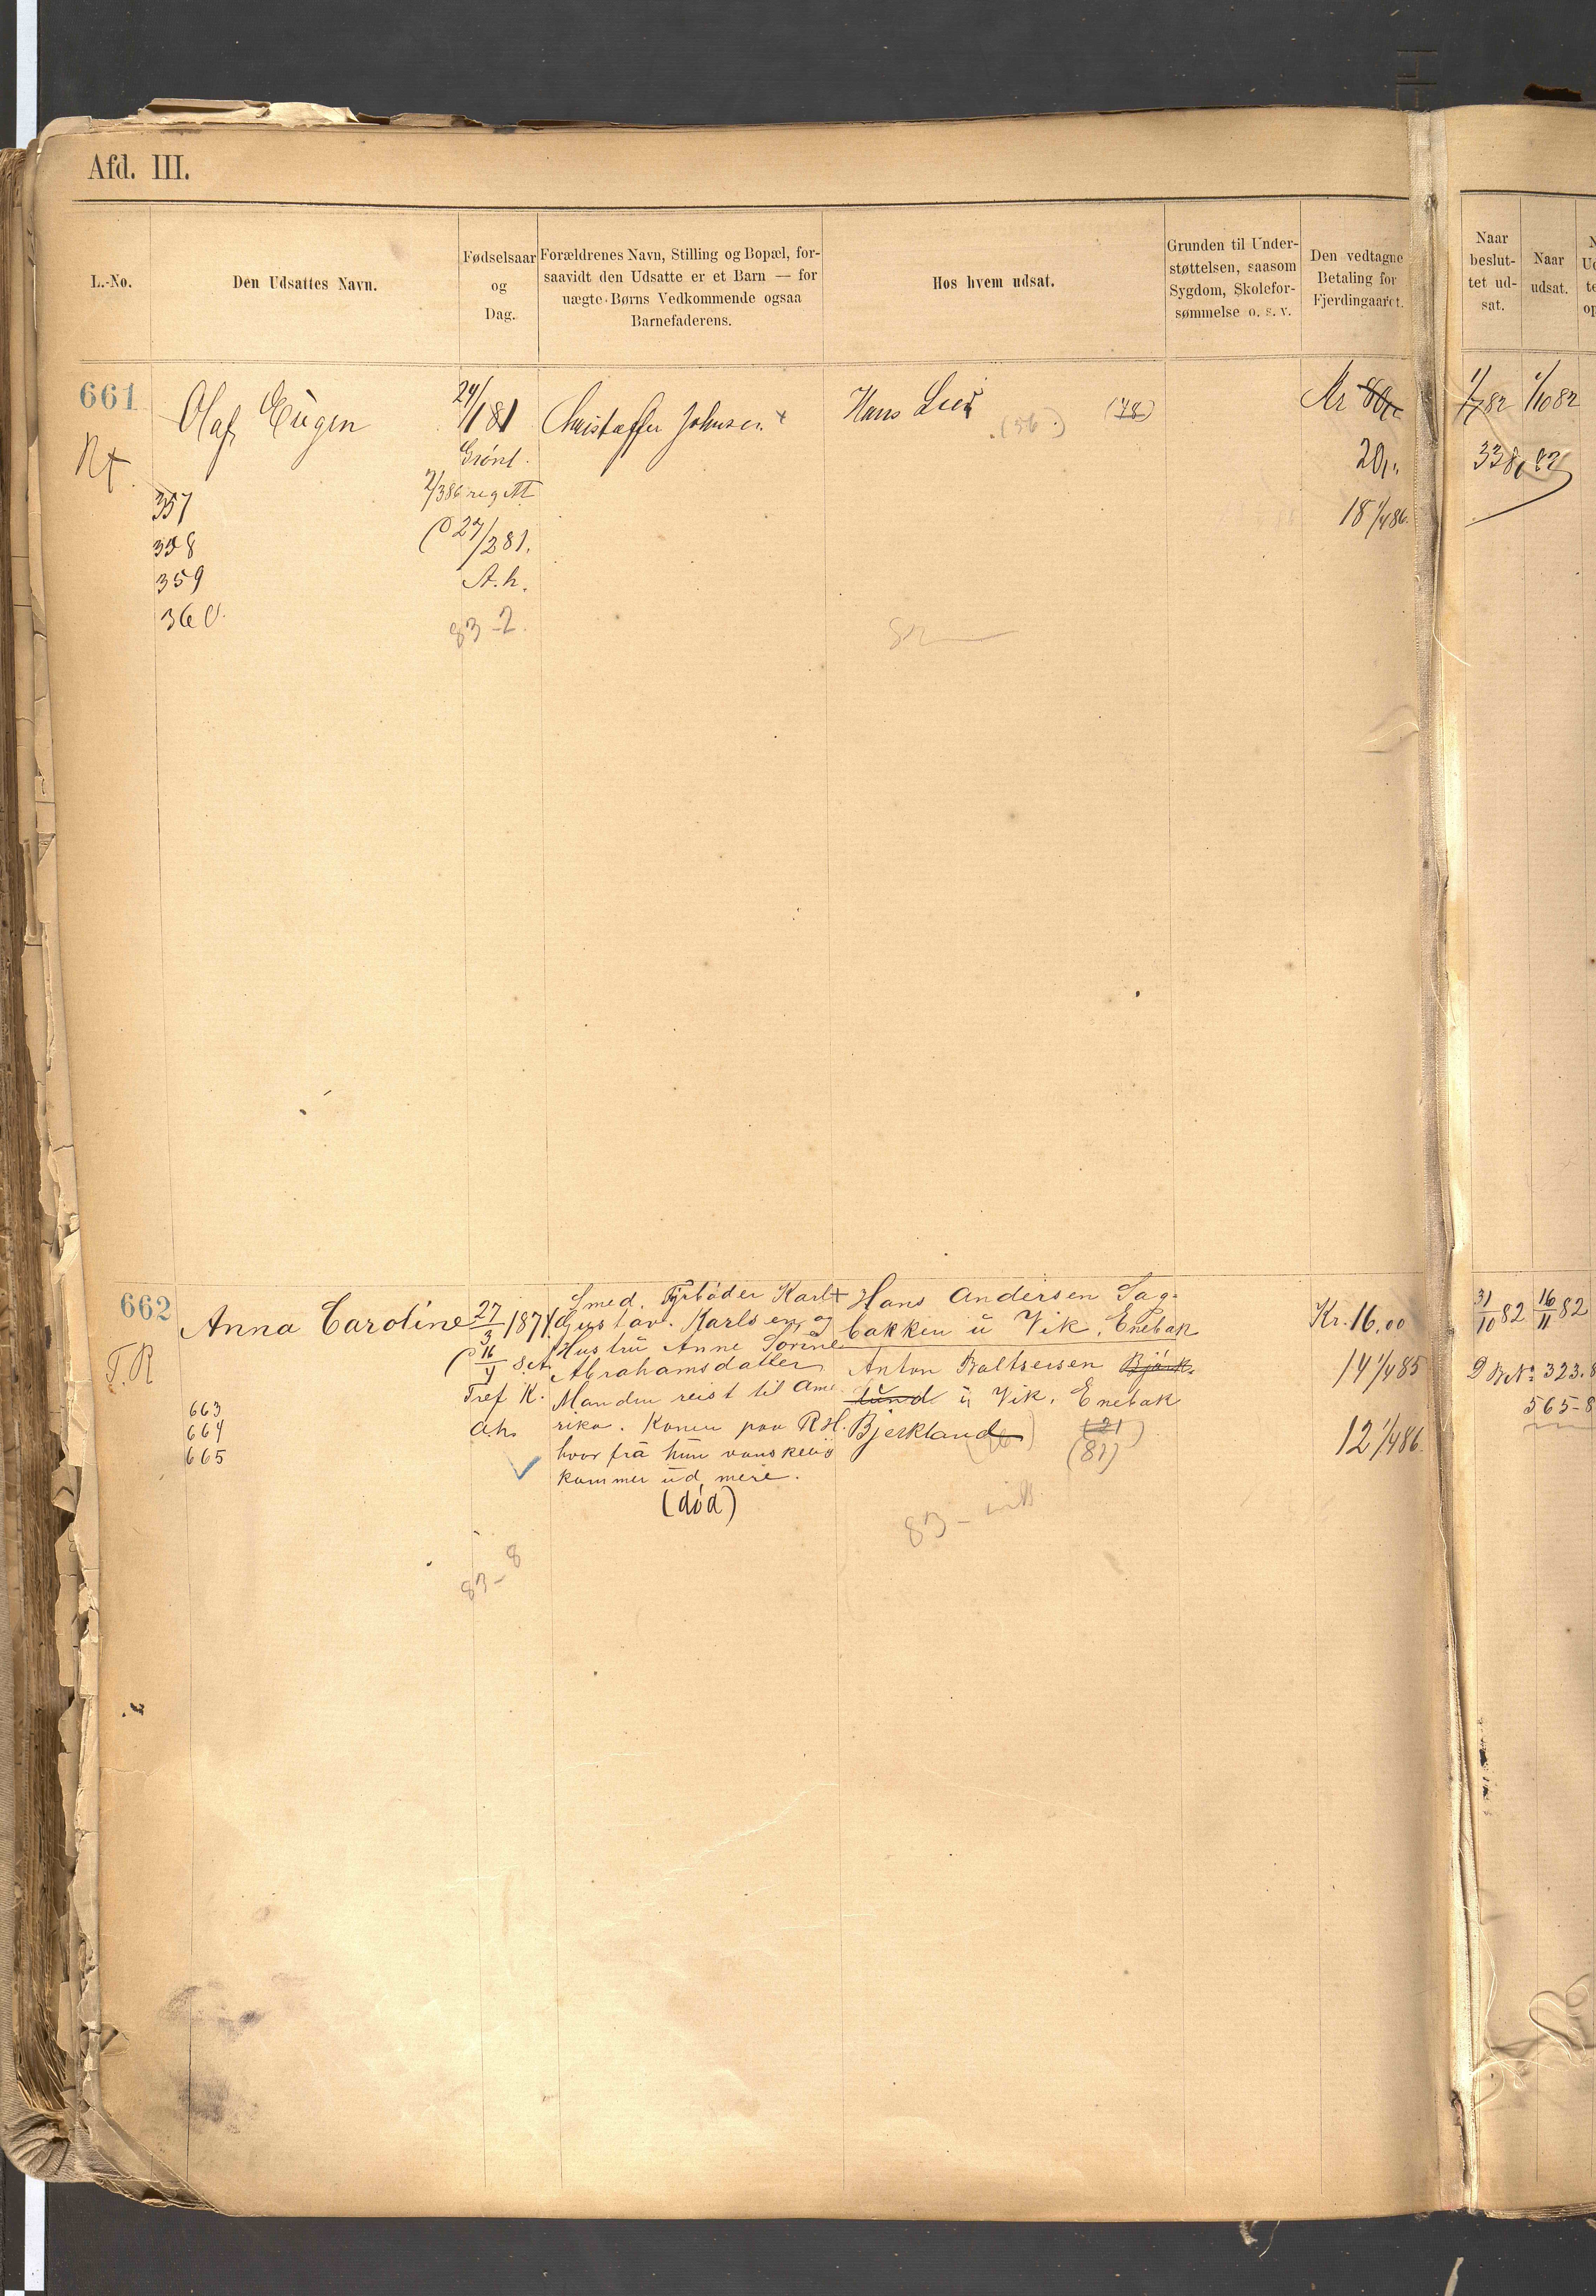 Afd. III.
L.-No.
Den Udsattes Navn.
Fødselsaar
og
Dag.
Forældrenes Navn, Stilling og Bopæl, for-
saavidt den Udsatte er et Barn — for
uægte Børns Vedkommende ogsaa
Barnefaderens.
Hos hvem udsat.
Grunden til Under-
støttelsen, saasom
Sygdom, Skolefor-
sømmelse o. s. v.
Den vedtagne
Betaling for
Fjerdingaaret.
Naar
beslut-
tet ud-
sat.
Naar
udsat.
661
Olaf Eugen
24/1 81
Christoffer Johnsen +
Hans Lier
(56)
(78)
Kr 80,,
1/7 82
1/10 82
Grønl.
20,,
338, 82
357
2/3 86
18 1/4 86.
358
27/2 81.
359
A. h.
360.
83-2.
82
662
Anna Caroline
27/3 1871
Smed. Fyrbøder Karl +
Gustav. Karlsen, og
Hustrü Anne Sorine
Abrahamsdatter
Manden reist til Ame
rika. Konen paa R.H.
hvor frä hün vanskelig
kommer üd mere.
(död)
Hans Andersen Sag-
bakken ü Vik. Enebak
Anton Baltsersen Bjørk-
lund ü Vik. Enebak
Bjerkland
(21)
(81)
Kr. 16,00
14 1/4 85
12 1/4 86.
31/10 82
16/11 82
No 323.8
565-8
T.R
16/4
Tref K.
a.h.
663
664
665
83-8
83-